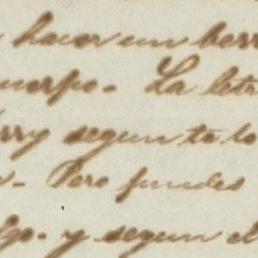 hacer un berr
uerpo. La letr
rry segun te lo
. Pero puedes
go. y segun el